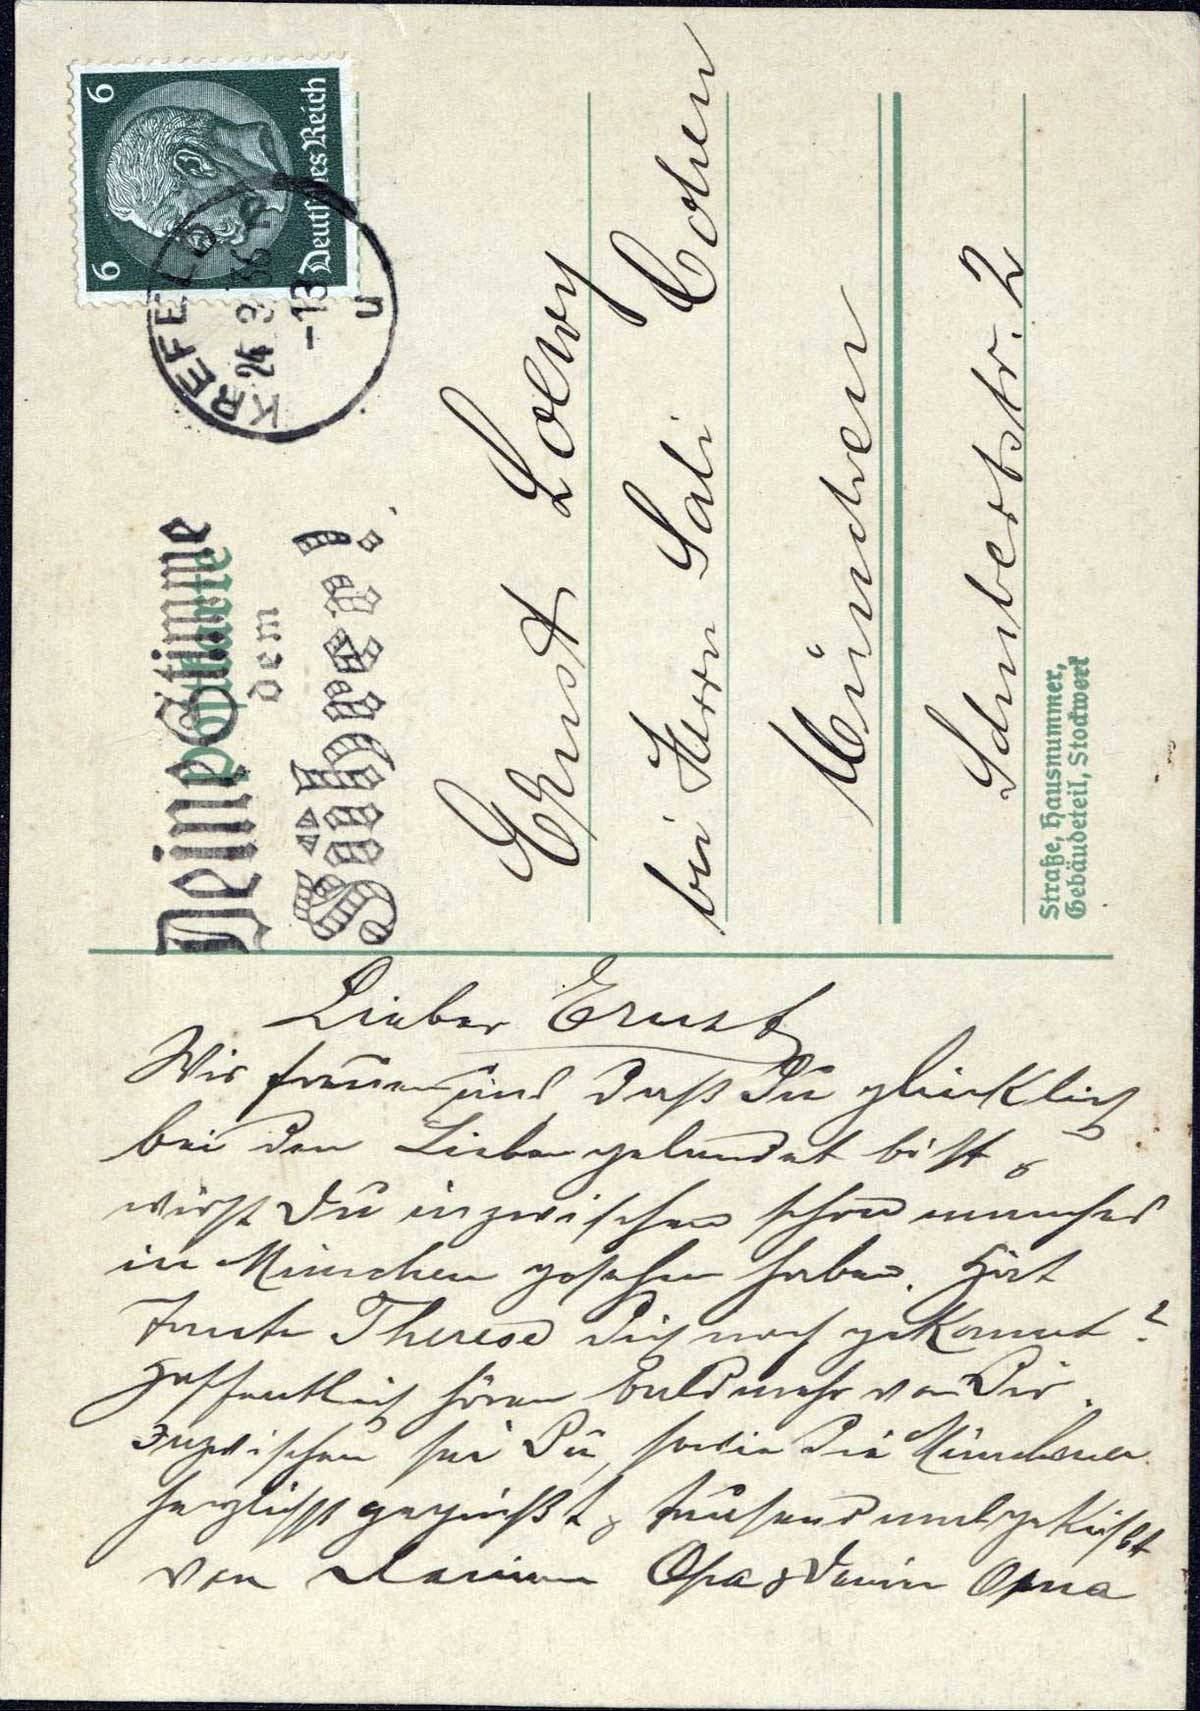 6 6
Deutsches Reich
KREFELD
24.3.36
-13
u
Postkarte
Deine Stimme
dem
Führer!
Ernst Loewy
bei Herrn Sali Cohen
München
Schubertstr. 2
Straße, Hausnummer,
Gebäudeteil, Stockwerk
Lieber Ernst
Wir freuen uns daß Du glücklich
bei den Lieben gelandet bist &
wirst Du inzwischen schon manches
in München gesehen haben. Hat
Tante Therese Dich noch gekannt?
Hoffentlich hören bald mehr von Dir.
Inzwischen sei Du, sowie die Münchener
herzlichst gegrüßt & tausendmal geküßt
von Deinem Opa & Deiner Oma